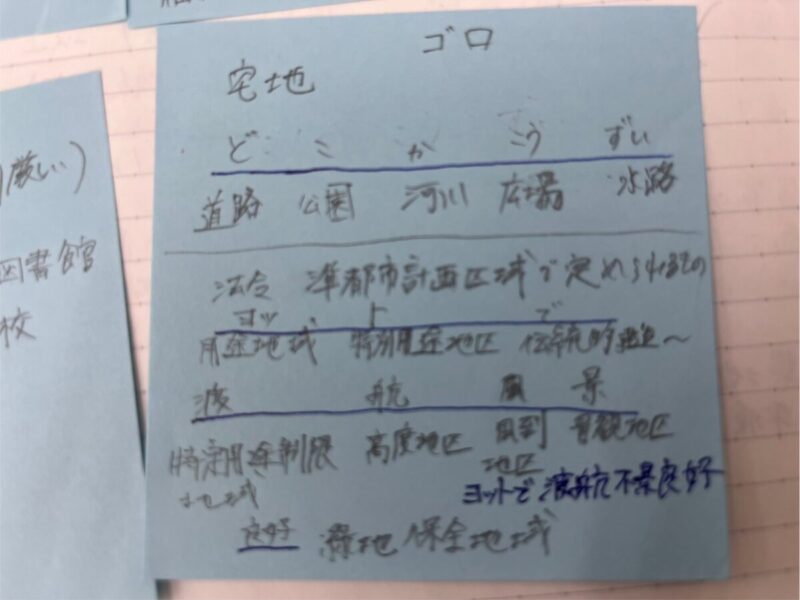 ゴロ
宅地
ど こ か こう ずい
道路 公園 河川 広場 水路
法令 準都市計画区域で定められるもの
ヨッ ト で
用途地域 特別用途地区 伝統的建造〜
渡 航 風 景
特定用途制限 高度地区 風到 景観地区
地域 地区
ヨットで渡航不景良好
良好 緑地保全地域
厳しい)
図書館
校